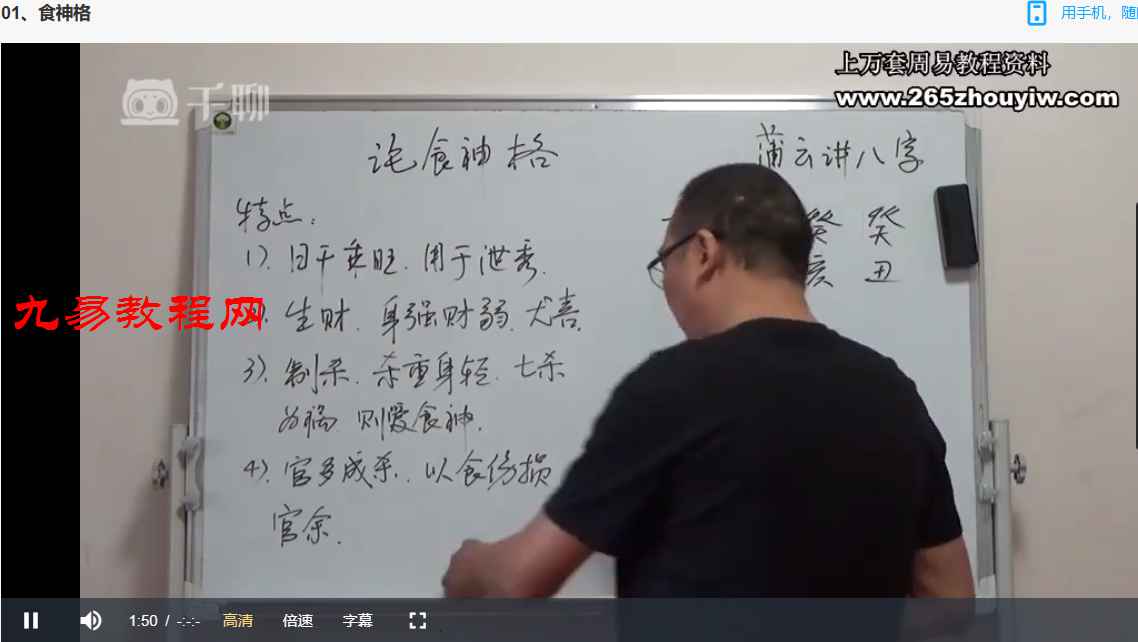 01、食神格
用手机，随
上万套周易教程资料
www.265zhouyiw.com
千聊
论食神格
蒲云讲八字
特点：
癸 癸
亥 丑
1）、日干乘旺、用于泄秀、
生财、身强财弱、尤喜、
九易教程网
3）、制杀、杀重身轻、七杀
为祸、则爱食神、
4）、官多成杀、以食伤损
官余、
1:50 / -:-:- 高清 倍速 字幕